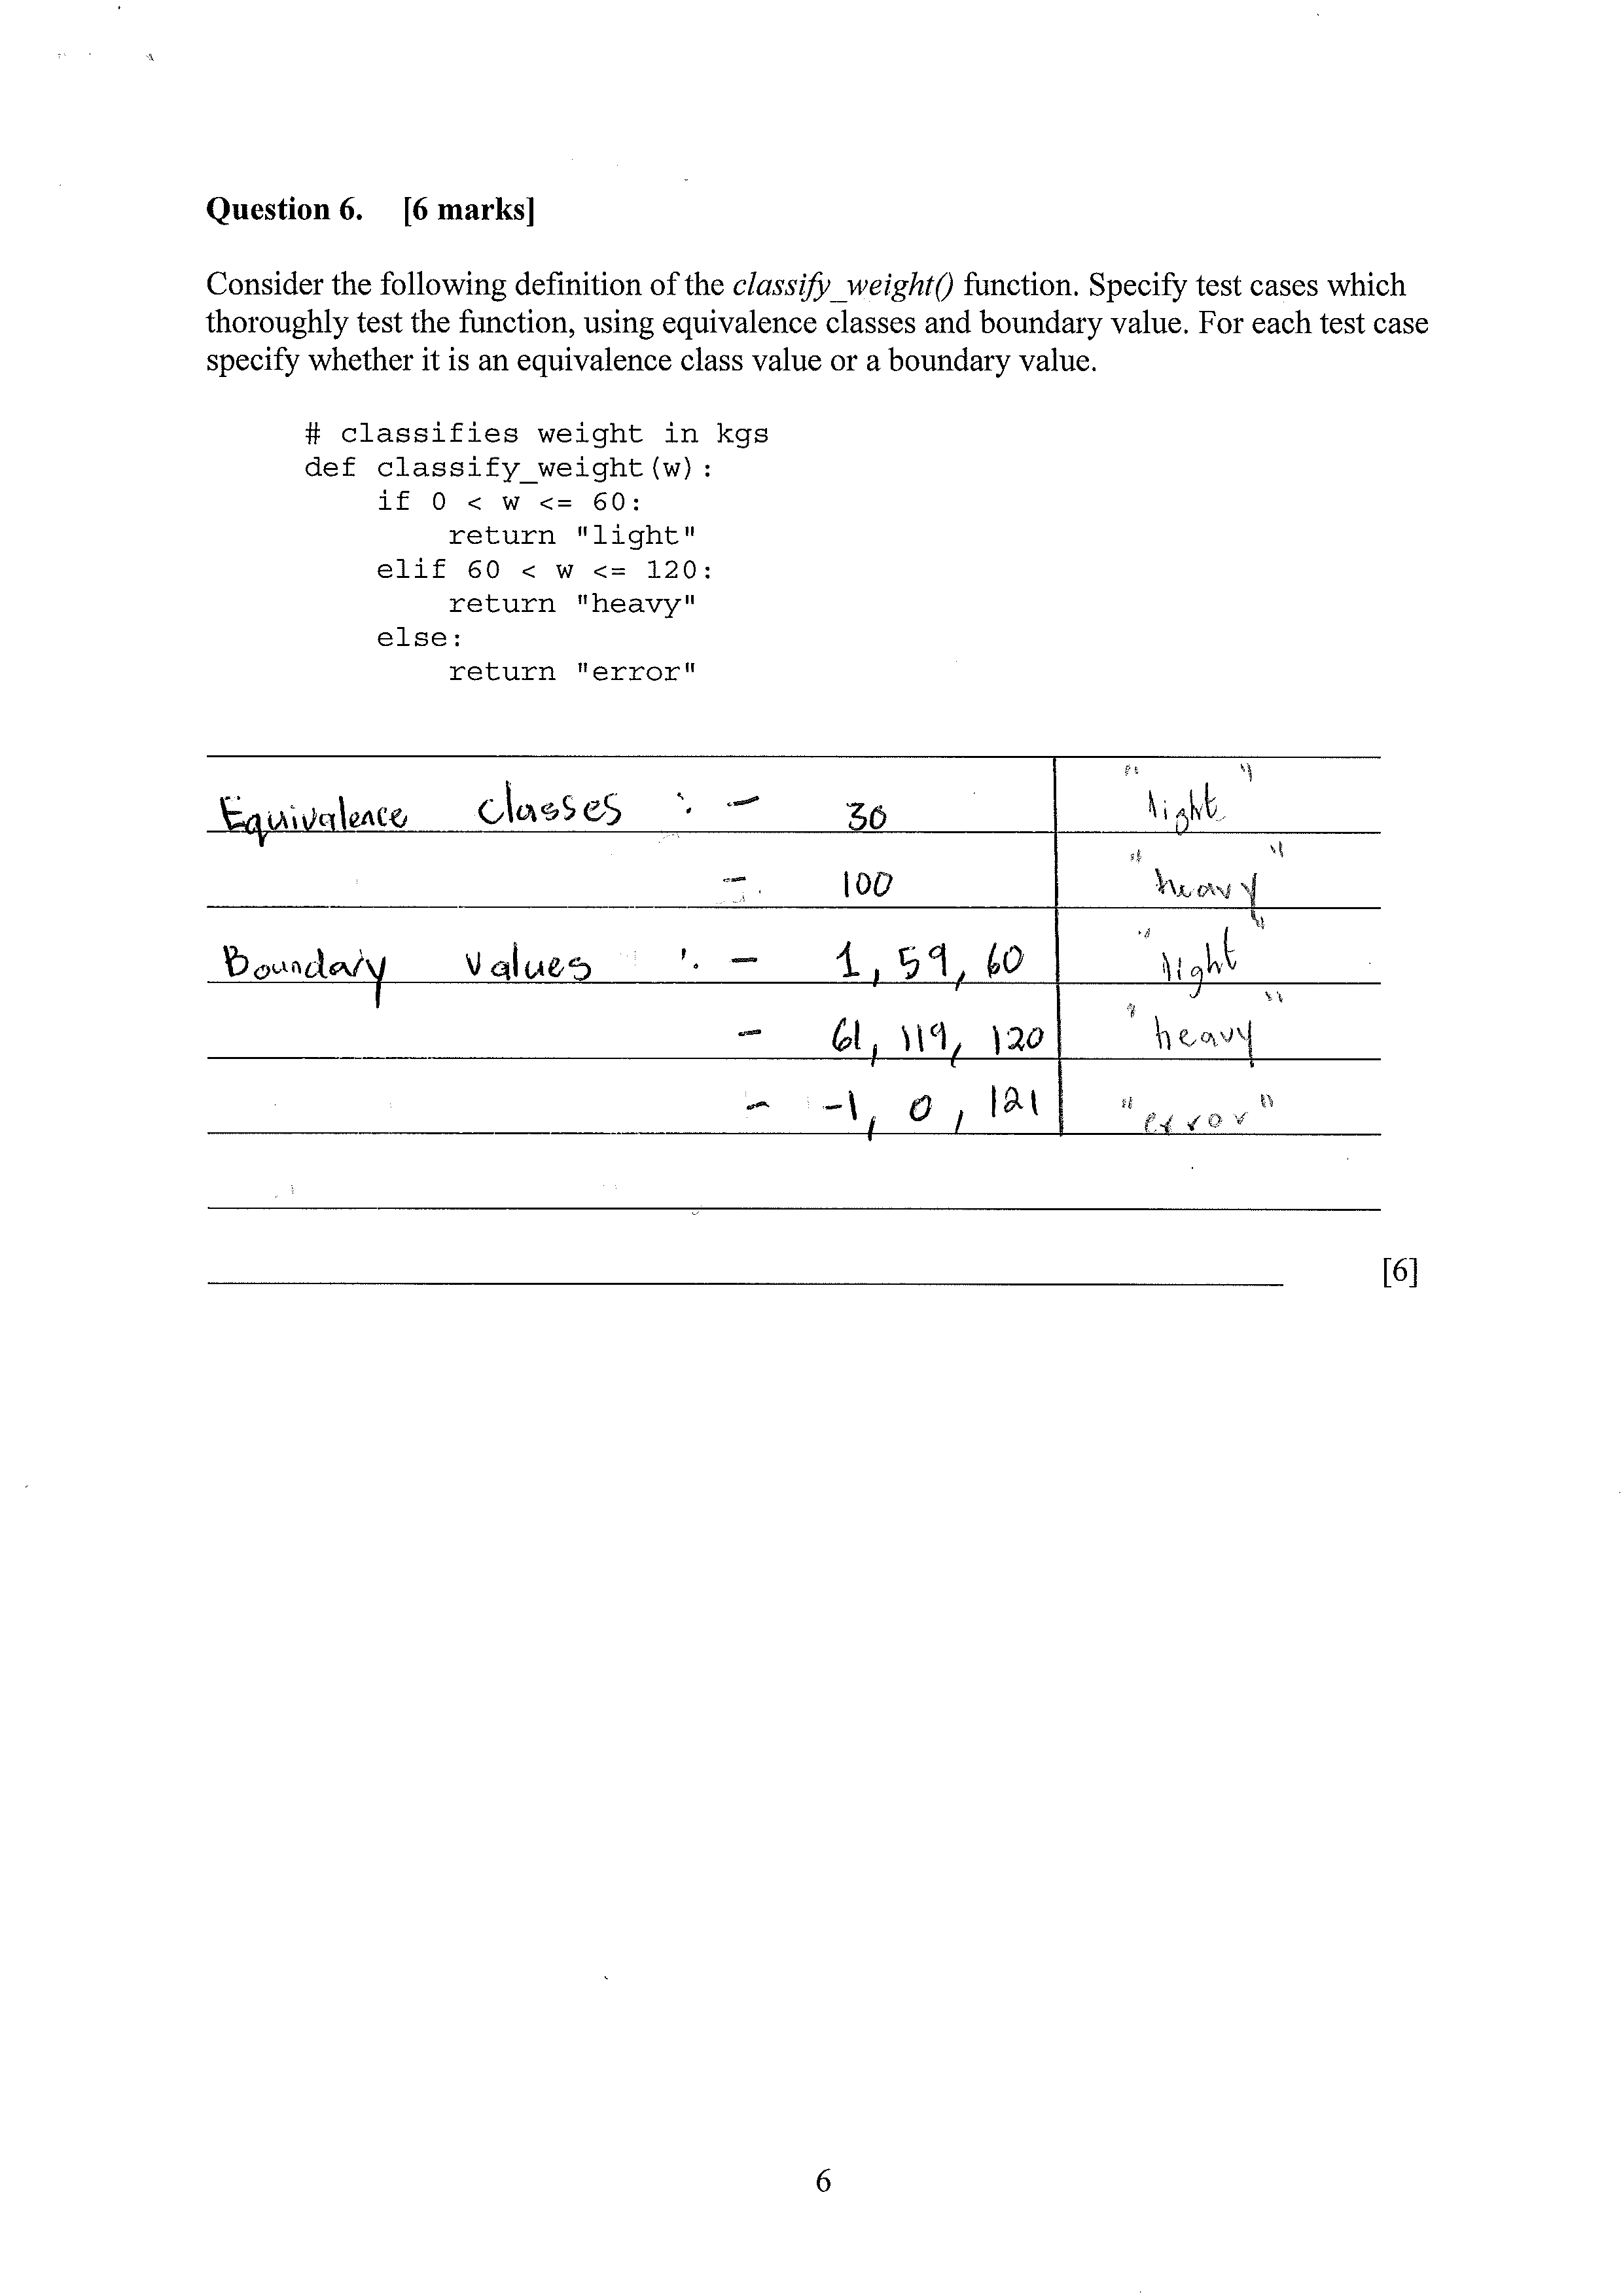 Question 6. [6 marks]
Consider the following definition of the classify_weight() function. Specify test cases which
thoroughly test the function, using equivalence classes and boundary value. For each test case
specify whether it is an equivalence class value or a boundary value.
# classifies weight in kgs
def classify_weight(w):
    if 0 < w <= 60:
        return "light"
    elif 60 < w <= 120:
        return "heavy"
    else:
        return "error"
Equivalence classes : - 30 "light"
- 100 "heavy"
Boundary values : - 1, 59, 60 "light"
- 61, 119, 120 "heavy"
- -1, 0, 121 "error"
[6]
6